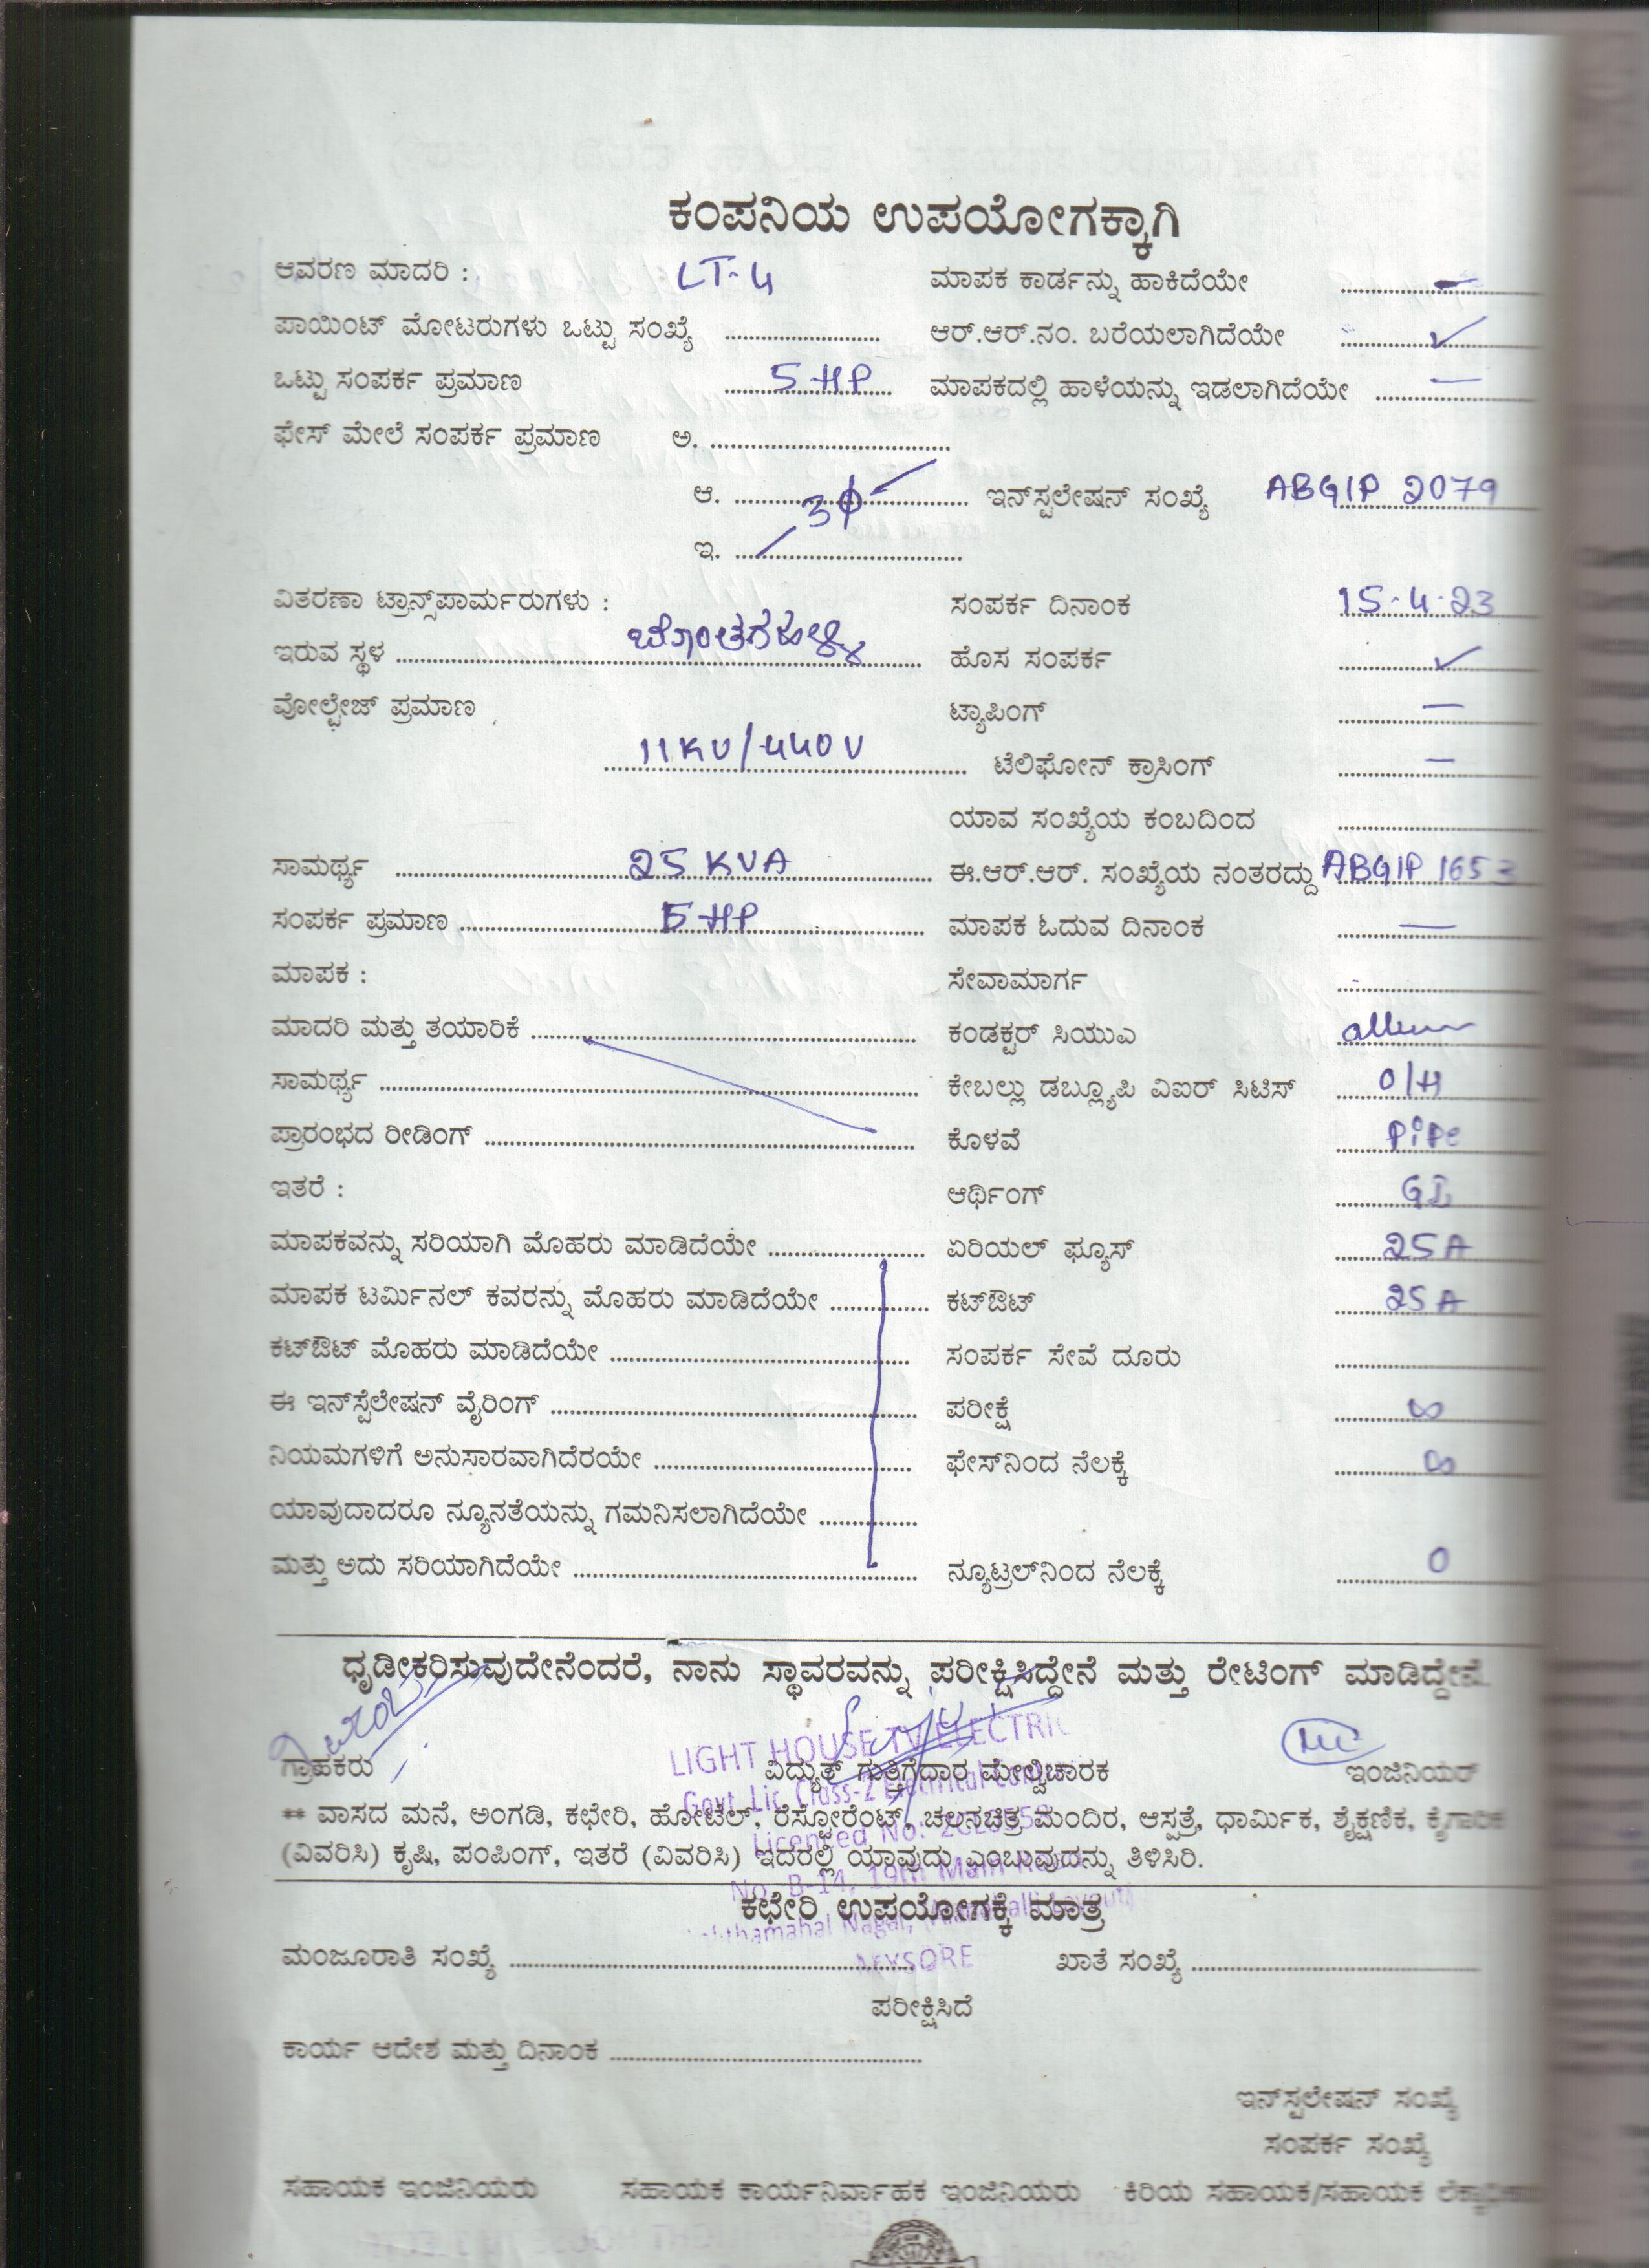 ಕಂಪನಿಯ ಉಪಯೋಗಕ್ಕಾಗಿ
ಆವರಣ ಮಾದರಿ : LT-4 ಮಾಪಕ ಕಾರ್ಡನ್ನು ಹಾಕಿದೆಯೇ –
ಪಾಯಿಂಟ್ ಮೋಟರುಗಳು ಒಟ್ಟು ಸಂಖ್ಯೆ .................... ಆರ್.ಆರ್.ನಂ. ಬರೆಯಲಾಗಿದೆಯೇ ✓
ಒಟ್ಟು ಸಂಪರ್ಕ ಪ್ರಮಾಣ 5 HP ಮಾಪಕದಲ್ಲಿ ಹಾಳೆಯನ್ನು ಇಡಲಾಗಿದೆಯೇ —
ಫೇಸ್ ಮೇಲೆ ಸಂಪರ್ಕ ಪ್ರಮಾಣ ಅ. ....................
ಆ. 3ϕ ಇನ್‌ಸ್ಟಲೇಷನ್ ಸಂಖ್ಯೆ ABGIP 2079
ಇ. ....................
ವಿತರಣಾ ಟ್ರಾನ್ಸ್‌ಪಾರ್ಮರುಗಳು : ಸಂಪರ್ಕ ದಿನಾಂಕ 15-4-23
ಇರುವ ಸ್ಥಳ .................... ಹೊಸ ಸಂಪರ್ಕ ✓
ವೋಲ್ಟೇಜ್ ಪ್ರಮಾಣ ಟ್ಯಾಪಿಂಗ್ —
11KV/440V ಟೆಲಿಫೋನ್ ಕ್ರಾಸಿಂಗ್ —
ಯಾವ ಸಂಖ್ಯೆಯ ಕಂಬದಿಂದ ....................
ಸಾಮರ್ಥ್ಯ 25 KVA ಈ.ಆರ್.ಆರ್. ಸಂಖ್ಯೆಯ ನಂತರದ್ದು ABGIP 1653
ಸಂಪರ್ಕ ಪ್ರಮಾಣ 5 HP ಮಾಪಕ ಓದುವ ದಿನಾಂಕ —
ಮಾಪಕ : ಸೇವಾಮಾರ್ಗ ....................
ಮಾದರಿ ಮತ್ತು ತಯಾರಿಕೆ .................... ಕಂಡಕ್ಟರ್ ಸಿಯುಎ
ಸಾಮರ್ಥ್ಯ .................... ಕೇಬಲ್ಲು ಡಬ್ಲ್ಯೂಪಿ ವಿಐರ್ ಸಿಟಿಸ್ O/H
ಪ್ರಾರಂಭದ ರೀಡಿಂಗ್ .................... ಕೊಳವೆ Pipe
ಇತರೆ : ಆರ್ಥಿಂಗ್ GI
ಮಾಪಕವನ್ನು ಸರಿಯಾಗಿ ಮೊಹರು ಮಾಡಿದೆಯೇ .................... ಏರಿಯಲ್ ಫ್ಯೂಸ್ 25A
ಮಾಪಕ ಟರ್ಮಿನಲ್ ಕವರನ್ನು ಮೊಹರು ಮಾಡಿದೆಯೇ .................... ಕಟ್‌ಔಟ್ 25A
ಕಟ್‌ಔಟ್ ಮೊಹರು ಮಾಡಿದೆಯೇ .................... ಸಂಪರ್ಕ ಸೇವೆ ದೂರು ....................
ಈ ಇನ್‌ಸ್ಟೆಲೇಷನ್ ವೈರಿಂಗ್ .................... ಪರೀಕ್ಷೆ ∞
ನಿಯಮಗಳಿಗೆ ಅನುಸಾರವಾಗಿದೆರಯೇ .................... ಫೇಸ್‌ನಿಂದ ನೆಲಕ್ಕೆ ∞
ಯಾವುದಾದರೂ ನ್ಯೂನತೆಯನ್ನು ಗಮನಿಸಲಾಗಿದೆಯೇ ....................
ಮತ್ತು ಅದು ಸರಿಯಾಗಿದೆಯೇ .................... ನ್ಯೂಟ್ರಲ್‌ನಿಂದ ನೆಲಕ್ಕೆ 0
ಧೃಡೀಕರಿಸುವುದೇನೆಂದರೆ, ನಾನು ಸ್ಥಾವರವನ್ನು ಪರೀಕ್ಷಿಸಿದ್ದೇನೆ ಮತ್ತು ರೇಟಿಂಗ್ ಮಾಡಿದ್ದೇನೆ.
LIGHT HOUSE TV ELECTRIC
ಗ್ರಾಹಕರು ವಿದ್ಯುತ್ ಗುತ್ತಿಗೆದಾರ ಮೇಲ್ವಿಚಾರಕ ಇಂಜಿನಿಯರ್
Govt. Lic. Class-2 Electrical
** ವಾಸದ ಮನೆ, ಅಂಗಡಿ, ಕಛೇರಿ, ಹೋಟೆಲ್, ರೆಸ್ಟೋರೆಂಟ್, ಚಲನಚಿತ್ರ ಮಂದಿರ, ಆಸ್ಪತ್ರೆ, ಧಾರ್ಮಿಕ, ಶೈಕ್ಷಣಿಕ, ಕೈಗಾರಿಕ
Licenced No:
(ವಿವರಿಸಿ) ಕೃಷಿ, ಪಂಪಿಂಗ್, ಇತರೆ (ವಿವರಿಸಿ) ಇದರಲ್ಲಿ ಯಾವುದು ಎಂಬುವುದನ್ನು ತಿಳಿಸಿರಿ.
No. B-14, 19th Main
ಕಛೇರಿ ಉಪಯೋಗಕ್ಕೆ ಮಾತ್ರ
Nagar,
ಮಂಜೂರಾತಿ ಸಂಖ್ಯೆ .................... MYSORE ಖಾತೆ ಸಂಖ್ಯೆ ....................
ಪರೀಕ್ಷಿಸಿದೆ
ಕಾರ್ಯ ಆದೇಶ ಮತ್ತು ದಿನಾಂಕ ....................
ಇನ್‌ಸ್ಟಲೇಷನ್ ಸಂಖ್ಯೆ
ಸಂಪರ್ಕ ಸಂಖ್ಯೆ
ಸಹಾಯಕ ಇಂಜಿನಿಯರು ಸಹಾಯಕ ಕಾರ್ಯನಿರ್ವಾಹಕ ಇಂಜಿನಿಯರು ಕಿರಿಯ ಸಹಾಯಕ/ಸಹಾಯಕ